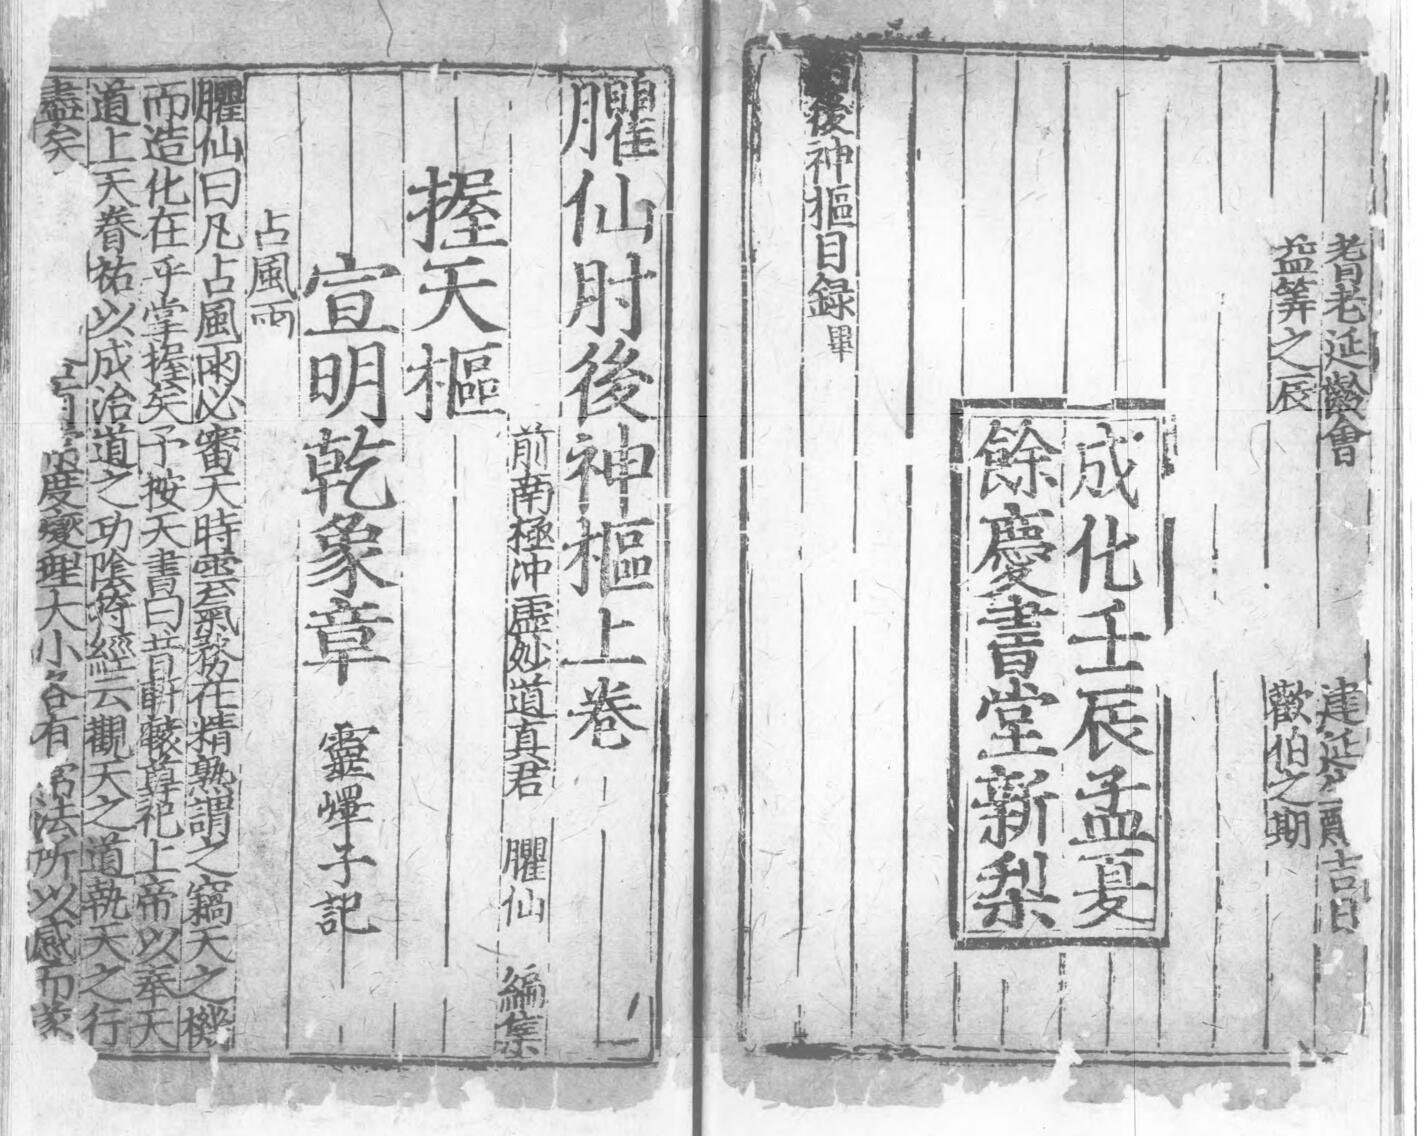 耆老延齡會
建延
吉日
益筭之辰
歡伯之期
成化壬辰孟夏
餘慶書堂新梨
後神樞目録畢
臞仙肘後神樞上卷
前南極沖虛妙道真君 臞仙 編集
握天樞
宣明乾象章 靈墿子記
占風雨
臞仙曰凡占風雨必審天時雲氣務在精熟謂之竊天之機
而造化在乎掌握矣予按天書曰昔軒轅尊祀上帝以奉天
道上天眷祐以成治道之功陰符經云觀天之道執天之行
盡矣
度燮理大小各有
法所以感而